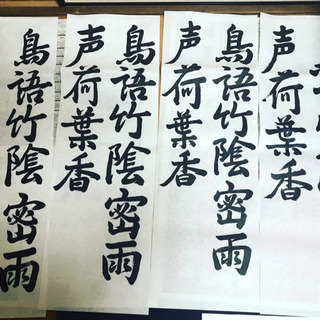 声荷葉香
鳥語竹陰密雨
声荷葉香
鳥語竹陰密雨
声荷葉香
鳥語竹陰密雨